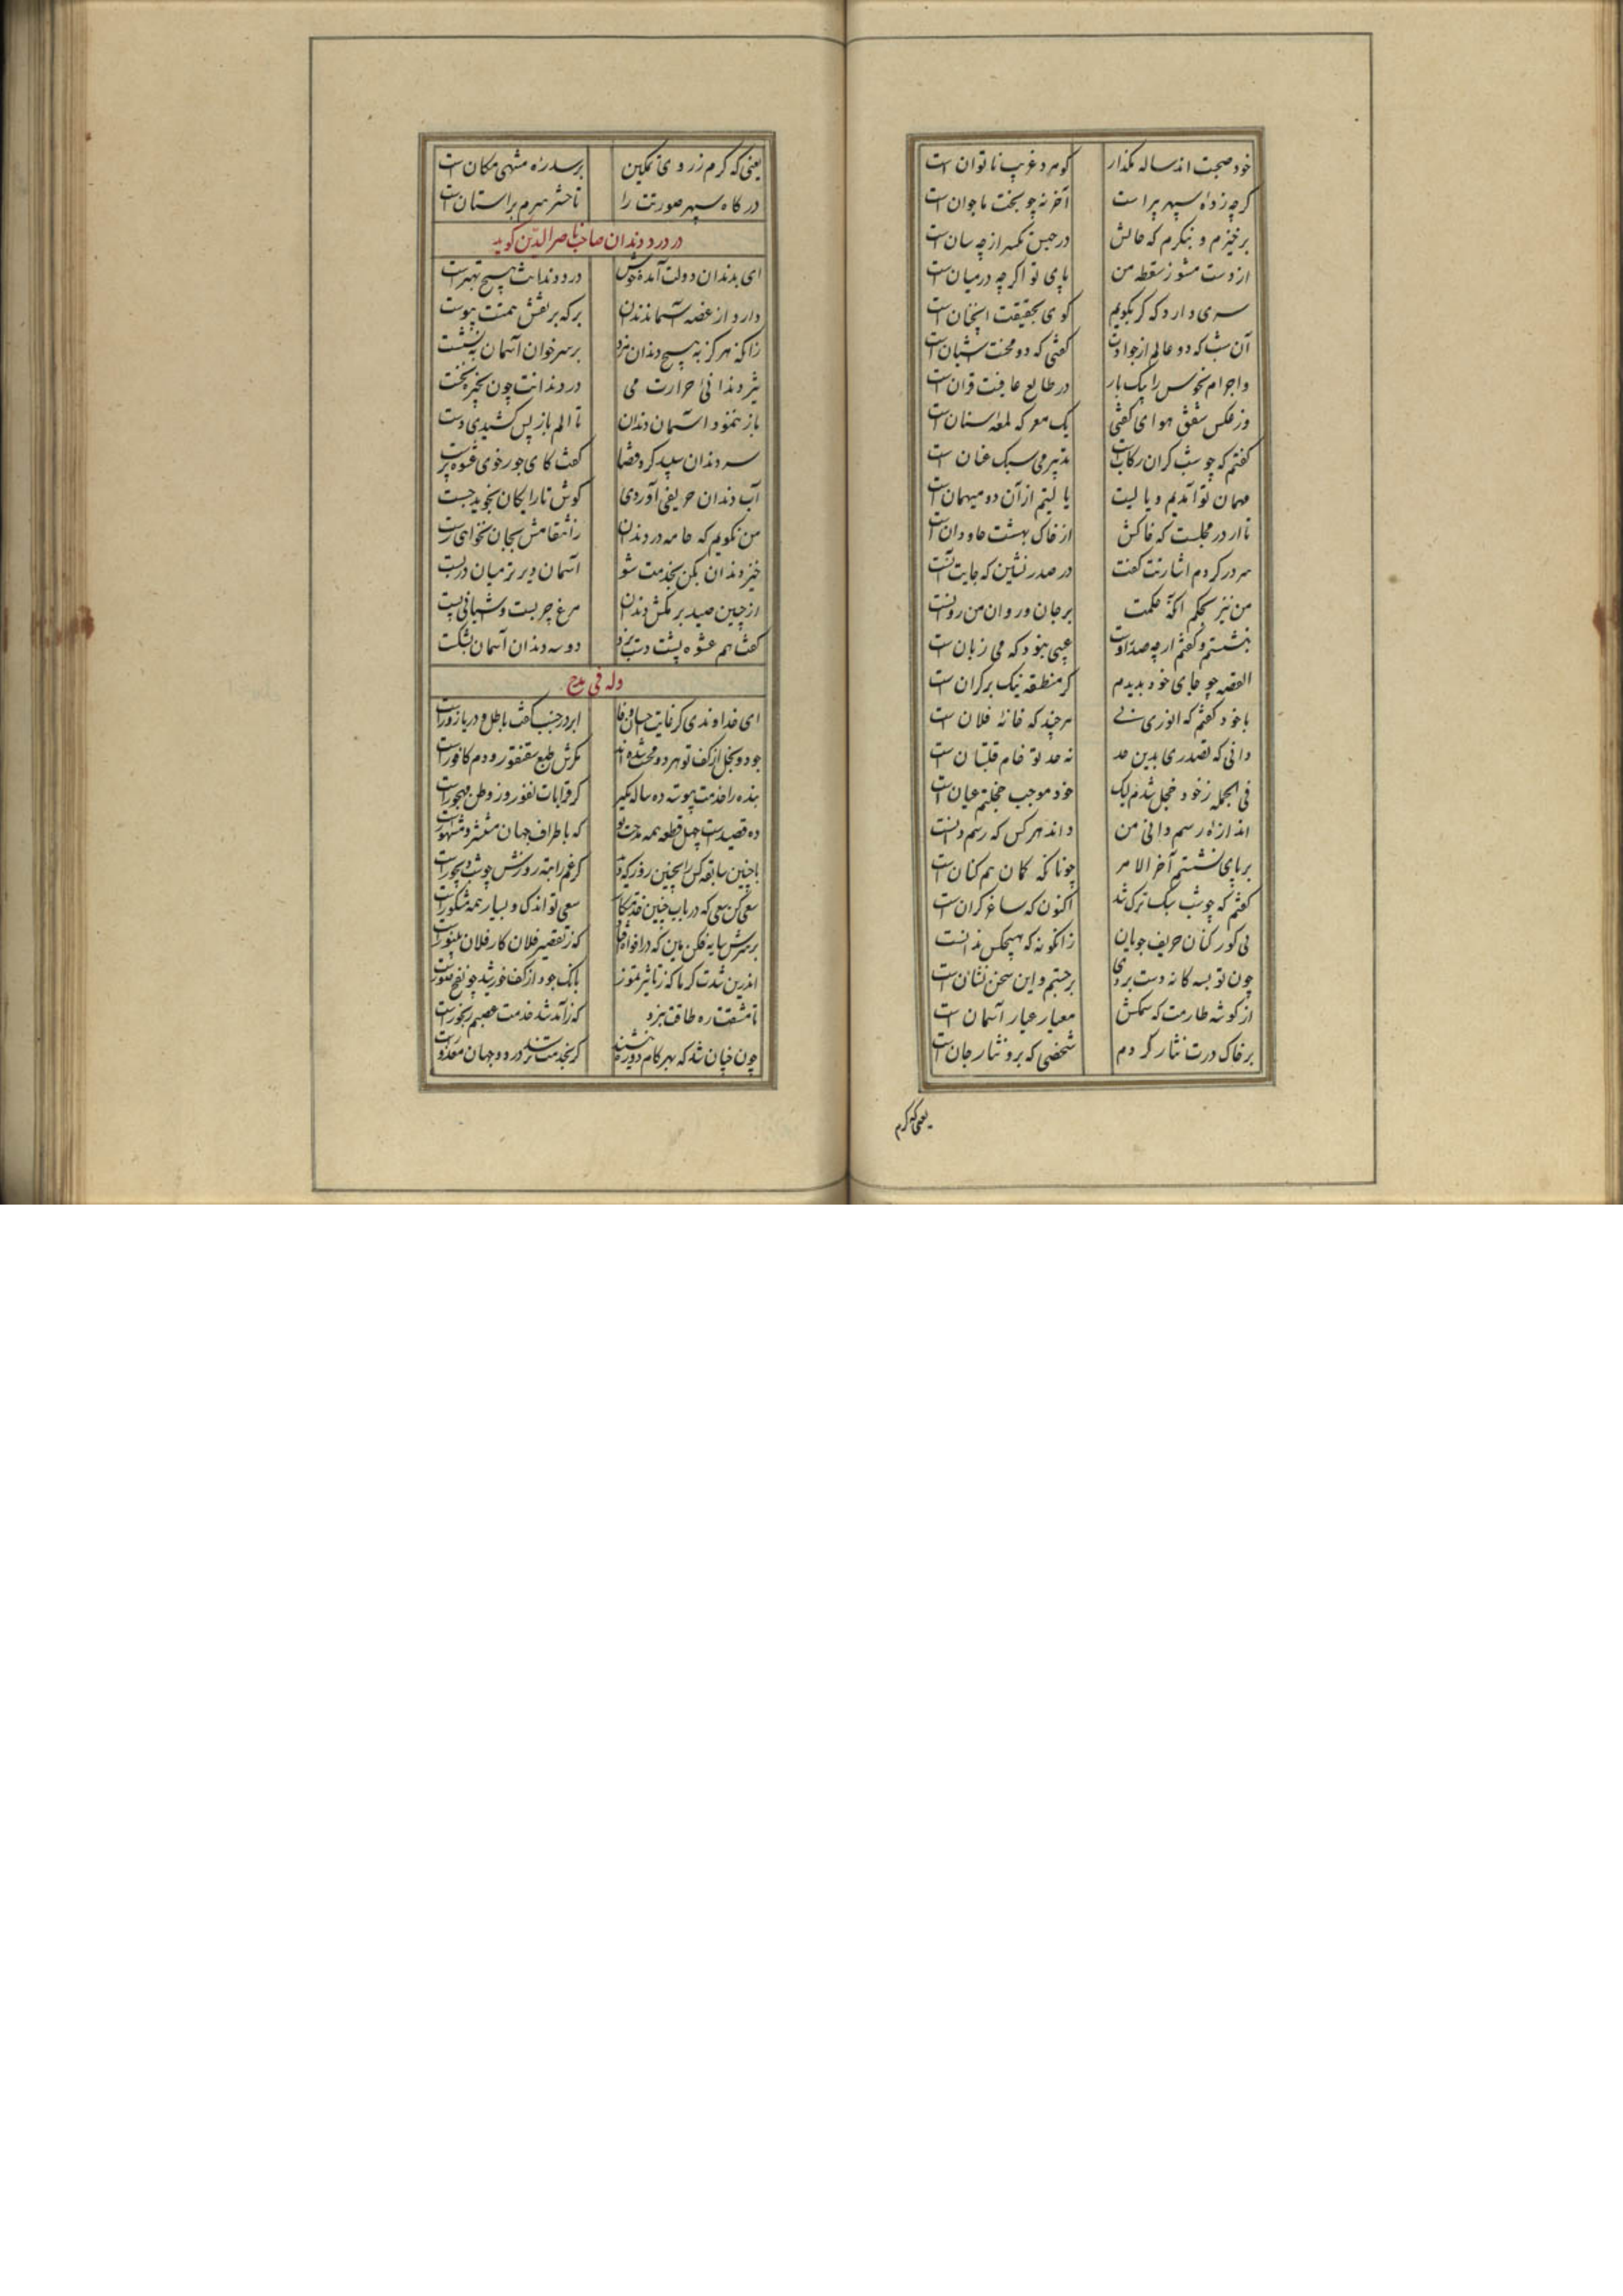 خود صحبت اند ساله بگذار کو مرد غریب ناتوان است
کرچه زاده سپهر پیراست آخر نه چو بخت ما جوان است
برخیزم و بنگرم که حالش در حبس تکسر از چه سان است
از دست مشو ز سقطه من پای تو اگرچه درمیان است
سری دارد که گر بگویم گوی بحقیقت آنچنان است
آن شب که دو عالم از حوادث گفتی که دو محنت شبان است
واجرام نحوس را بیک بار در طالع عافیت قران است
وز عکس شفق هوای گفتی یک معرکه لمعه سنان است
گفتم که چو شب گران رکاب است تدبیر می سبک عنان است
مهمان تو آمدیم و یا لیت یا لیتم از آن دو میهمان است
تا در مجلست که خاکش از خاک بهشت جاودان است
سر در کردم اشارتت گفت در صدر نشین که جایت آنست
من نیز بحکم آنکه حکمت بر جان و روان من روانست
بنشستم و گفتم ارچه صدر اوست عیبی نبود که می زبان است
القصه چو جای خود بدیدم گر منطقه نیک بر کران است
با خود گفتم که انوری هرچند که خانه فلان است
دانی که تصدری بدین حد نه حد تو خام قلتبان است
فی الجمله ز خود خجل شدم لیک خود موجب خجلتم عیان است
اندازه رسم دانی من داند هر کس که رسم دانست
بر پای نشستم آخر الامر چونانکه کمان هم کنان است
گفتم که چو شب سبک ترک شد اکنون که ساغر گران است
نی کورکنان حریف جویان زانگونه که هیچکس ندانست
چون تو بسه گانه دست بردی برجستم و این سخن نشان است
از گوشه طارمت که سمکش معیار عیار آسمان است
بر خاک درت نثار کردم شخصی که برو نثار جان است
یعنی که کرم
یعنی که کرم ز روی تمکین بر سدره منتهی مکان است
درگاه سپهر صورتت را تا حشر سرم بر آستان است
در درد دندان صاحب ناصرالدین گوید
ای بدندان دولت آمده خوش درد دندانت هیچ بهتر است
دارد از غصه آسمان دندان بر که بر نقش همتت پیوست
زانکه هرگز به هیچ دندان مزد بر سر خوان آسمان ننشست
تیز دندانی حرارت می درد دندانت چون بخیره بخست
باز ننمود آسمان دندان تا الم باز پس کشیدی دست
سر دندان سپید کرد قضا گفت کای جور خوی عشوه پرست
آب دندان حریفی آوردی گوش تا رایگان نخوید جست
من نگویم که جامه در دندان ز انتقامش بجان نخواهی رست
خیز و دندان بکن بخدمت شو آسمان دیرتر میان دربست
از چنین صید برمکش دندان مرغ چربست و آشیانی پست
گفت هم عشوه پشت دست بزد دو سه دندان آسمان بشکست
وله فی مدح
ای خداوندی کز غایت احسان و سخا ابر در جنب کفت باطل و دریا زور است
جود و بخل از کف تو هر دو مخنث شده‌اند مگرش طبع سقنقور و دم کافور است
بنده را خدمت پیوسته ده ساله مگیر گر قرابات نفور و ز وطن مهجور است
ده قصیده است چهل قطعه همه مدحت تو که باطراف جهان منتشر و مشهور است
با چنین سابقه کس را بچنین روز که دید کز غم راتبه روزش چو شب دیجور است
سعی کن سعی که در باب چنین خدمتکار سعی تو اندک و بسیار همه مشکور است
بر سرش سایه فکن هین که در افواه افتد که ز تقصیر فلان کار فلان بینور است
اندرین شدت گرما که ز تاثیر تموز بانگ جود از کف خورشید چو نفخ صور است
تا مشقت ره طاقت بزد که ز آمد شد خدمت عصبم رنجور است
چون چنان شد که بهر گام دو ره بنشیند گر بخدمت نرسد در دو جهان معذور است